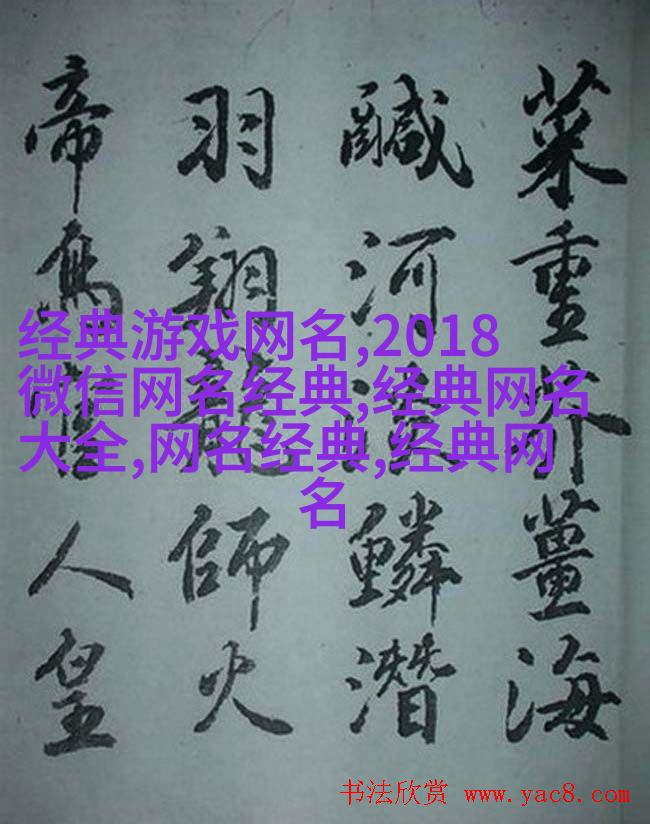 菜重芥薑海
鹹河淡鱗潛
羽翔龍師火
帝鳥官人皇
经典游戏网名,2018
微信网名经典,经典网名
大全,网名经典,经典网
名
书法欣赏 www.yac8.com